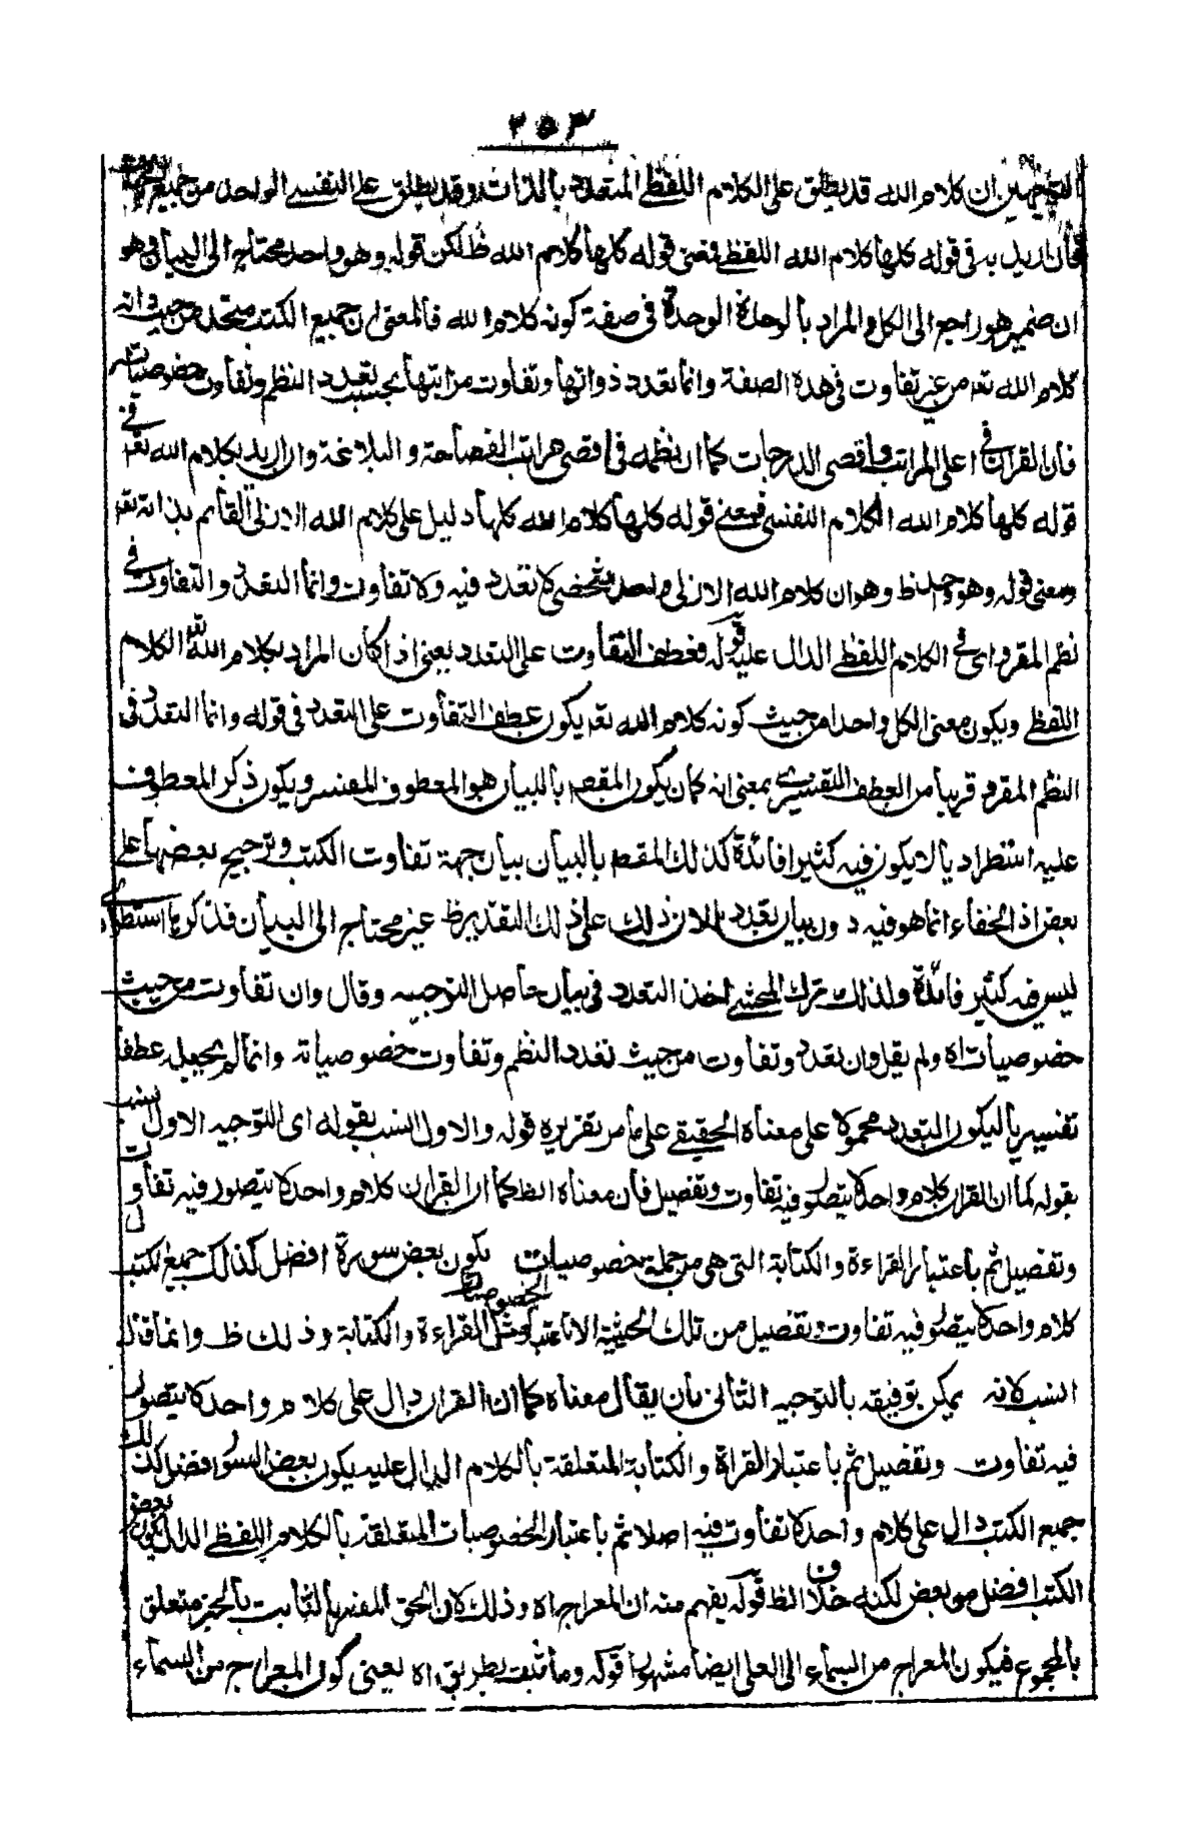 ٢٥٣
التوجيهين ان كلام الله قد يطلق على الكلام اللفظي المتعدد بالذات وقد يطلق على النفسي الواحد من جميع الجهات
فان اريد به في قوله كلها كلام الله اللفظي فمعنى قوله كلها كلام الله ظ لكن قوله وهو واحد محتاج الى البيان وهو
ان ضمير هو راجع الى الكل والمراد بالوحدة الوحدة في صفة كونه كلام الله فالمعنى ان جميع الكتب متحد من حيث انه
كلام الله تعه من غير تفاوت في هذه الصفة وانما تعدد ذواتها وتفاوت مراتبها بحسب تعدد النظم وتفاوت خصوصياته
فان القران في اعلى المراتب واقصى الدرجات كما ان نظمه في اقصى مراتب الفصاحة والبلاغة وان اريد بكلام الله تعه في
قوله كلها كلام الله الكلام النفسي فمعنى قوله كلها كلام الله كلها دليل على كلام الله الازلى القائم بذاته تعه
ومعنى قوله وهو واحد ظ وهو ان كلام الله الازلى واحد شخصى لا تعدد فيه ولا تفاوت وانما التعدد والتفاوت في
نظم المقرو اى في الكلام اللفظي الدال عليه قوله فعطف التفاوت على التعدد يعنى اذا كان المراد بكلام الله الكلام
اللفظي ويكون معنى الكل واحدا من حيث كونه كلام الله تعه يكون عطف التفاوت على التعدد في قوله وانما التعدد في
النظم المقرو قريبا من العطف التفسيرى بمعنى انه كمان يكون المقصه بالبيان هو المعطوف المفسر ويكون ذكر المعطوف
عليه استطراديا لا يكون فيه كثير افائدة كذلك المقصه بالبيان بيان جهة تفاوت الكتب وترجيح بعضها على
بعض اذ الخفاء انما هو فيه دون بيان تعدد ها لان ذلك على ذلك التقدير ظ غير محتاج الى البيان فذكرها استطرادى
ليس فيه كثير فائدة ولذلك ترك المحشى اخذ التعدد في بيان حاصل التوجيه وقال وان تفاوت من حيث
خصوصيات اه ولم يقل وان تعدد وتفاوت من حيث تعدد النظم وتفاوت خصوصياته وانما لم يجعله عطفا
تفسيريا ليكون التعدد محمولا على معناه الحقيقي على ما مر تقريره قوله والاول انسب بقوله اى التوجيه الاول انسب
بقوله كما ان القران كلام واحد لا يتصور فيه تفاوت وتفضيل فان معناه الظ كما ان القران كلام واحد لا يتصور فيه تفاوت
وتفضيل ثم باعتبار القراءة والكتابة التى هى من جملة خصوصيات يكون بعض سورة افضل كذلك جميع الكتب
كلام واحد لا يتصور فيه تفاوت وتفضيل من تلك الحيثية الا باعتبار الخصوصيات مثل القراءة والكتابة وذلك ظ وانما قال
انسب لانه يمكن توفيقه بالتوجيه الثانى بان يقال معناه كما ان القران دال على كلام واحد لا يتصور
فيه تفاوت وتفضيل ثم باعتبار القراة والكتابة المتعلقة بالكلام الدال عليه يكون بعض السور افضل كذلك
جميع الكتب دال على كلام واحد لا تفاوت فيه اصلا ثم باعتبار الخصوصيات المتعلقة بالكلام اللفظي الدال يكون بعض
الكتب افضل من بعض لكنه خلاف الظ قوله يفهم منه ان المعراج اه وذلك لان الحق المفسر بالثابت بالخبر متعلق
بالمجموع فيكون المعراج من السماء الى العلى ايضا مشهورا قوله وما ثبت بطريق اه يعنى كون المعراج من السماء